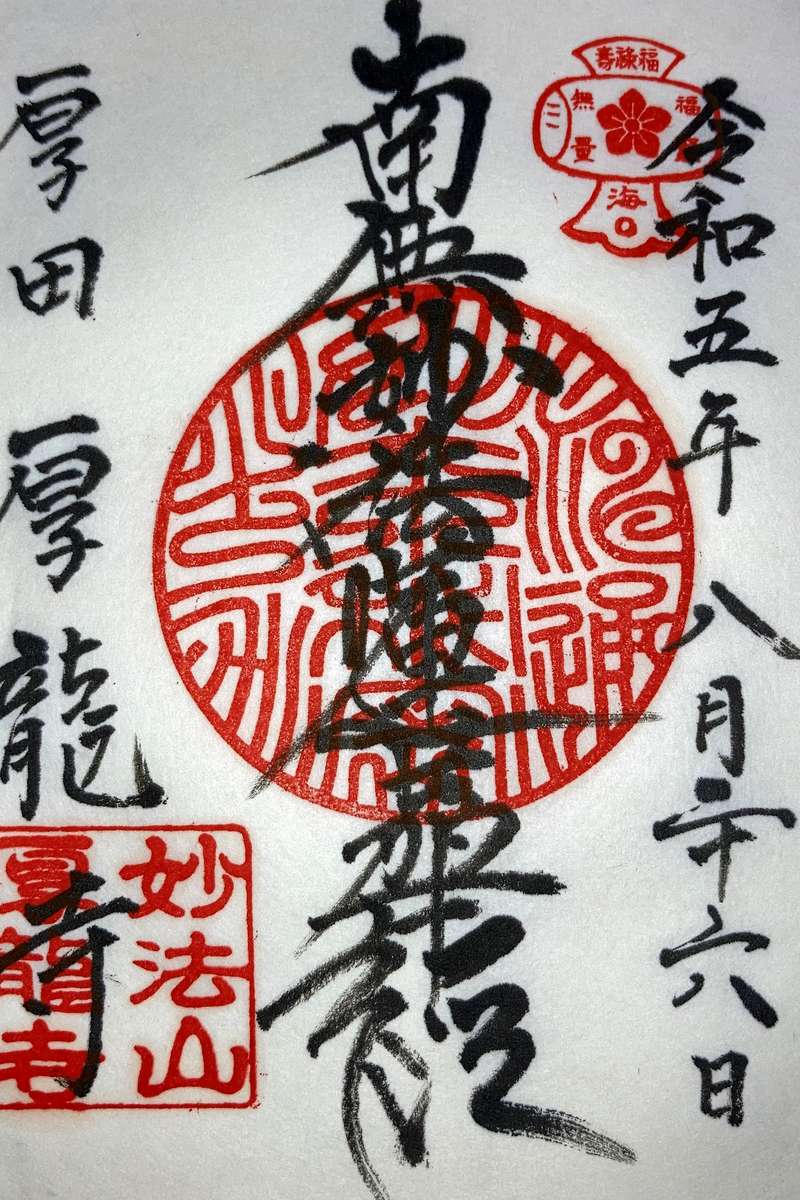 令和五年 八月二十六日
福祿壽
福
海
無量
南無妙法蓮華經
厚田 厚龍寺
妙法山
厚龍寺